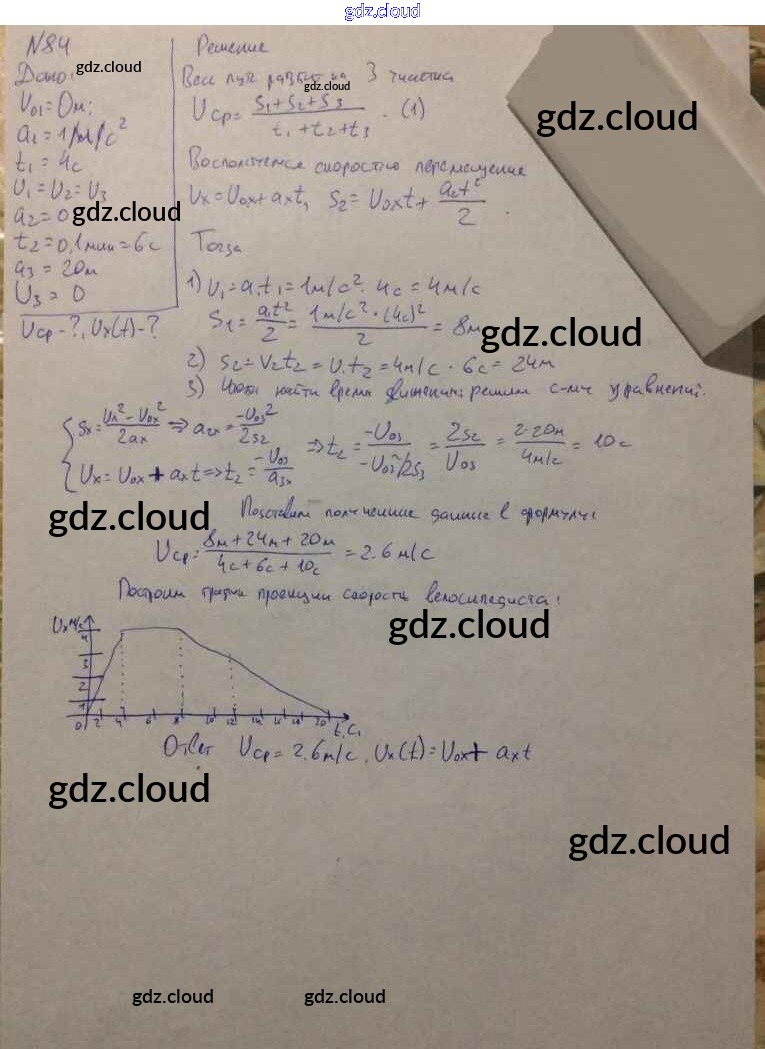 gdz.cloud
N84
Дано:
V₀₁=0м;
a₁=1м/с²
t₁=4с
V₁=V₂=V₃
a₂=0
t₂=0,1мин=6с
a₃=20м
V₃=0
Vср-?, Vx(t)-?
Решение
Весь путь разбит на 3 участка
Vср = (s₁+s₂+s₃)/(t₁+t₂+t₃). (1)
скоростью перемещение
Vx=V₀x+axt, s₂=V₀xt+ a₂t²/2.
Тогда
1) V₁=a₁t₁=1м/с²·4с=4м/с
S₁= a₁t²/2 = 1м/с²·(4с)²/2 = 8м
2) S₂=V₂t₂=V₁t₂=4м/с·6с=24м
3) найти время движения: решим с-му уравнений.
{ Sx= (Vx²-V₀x²)/2ax ⇒ a₂x= -V₀₃²/2s₂
Vx=V₀x+axt ⇒ t₂= -V₀₃/a₃x
⇒ t₂= -V₀₃/(-V₀₃²/2s₃) = 2s₂/V₀₃ = 2·20м/4м/с = 10с
Подставим полученные данные в формулу:
Vср= (8м+24м+20м)/(4с+6с+10с) = 2.6м/с
Построим график проекции скорость велосипедиста:
Vx м/с
4
3
2
1
0 2 4 6 8 10 12 14 16 18 20 t,с.
Ответ Vср=2.6м/с, Vx(t)=V₀x+axt
gdz.cloud
gdz.cloud
gdz.cloud
gdz.cloud
gdz.cloud
gdz.cloud
gdz.cloud
gdz.cloud
gdz.cloud
gdz.cloud
gdz.cloud